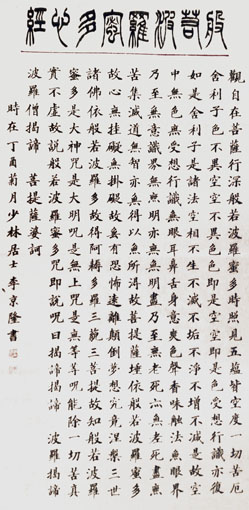 般若波羅蜜多心經
觀自在菩薩行深般若波羅蜜多時照見五蘊皆空度一切苦厄
舍利子色不異空空不異色色即是空空即是色受想行識亦復
如是舍利子是諸法空相不生不滅不垢不淨不增不減是故空
中無色無受想行識無眼耳鼻舌身意無色聲香味觸法無眼界
乃至無意識界無無明亦無無明盡乃至無老死亦無老死盡無
苦集滅道無智亦無得以無所得故菩提薩埵依般若波羅蜜多
故心無掛礙無掛礙故無有恐怖遠離顛倒夢想究竟涅槃三世
諸佛依般若波羅蜜多故得阿耨多羅三藐三菩提故知般若波羅
蜜多是大神咒是大明咒是無上咒是無等等咒能除一切苦真
實不虛故說般若波羅蜜多咒即說咒曰揭諦揭諦 波羅揭諦
波羅僧揭諦 菩提薩婆訶
時在丁酉菊月少林居士李京隆書